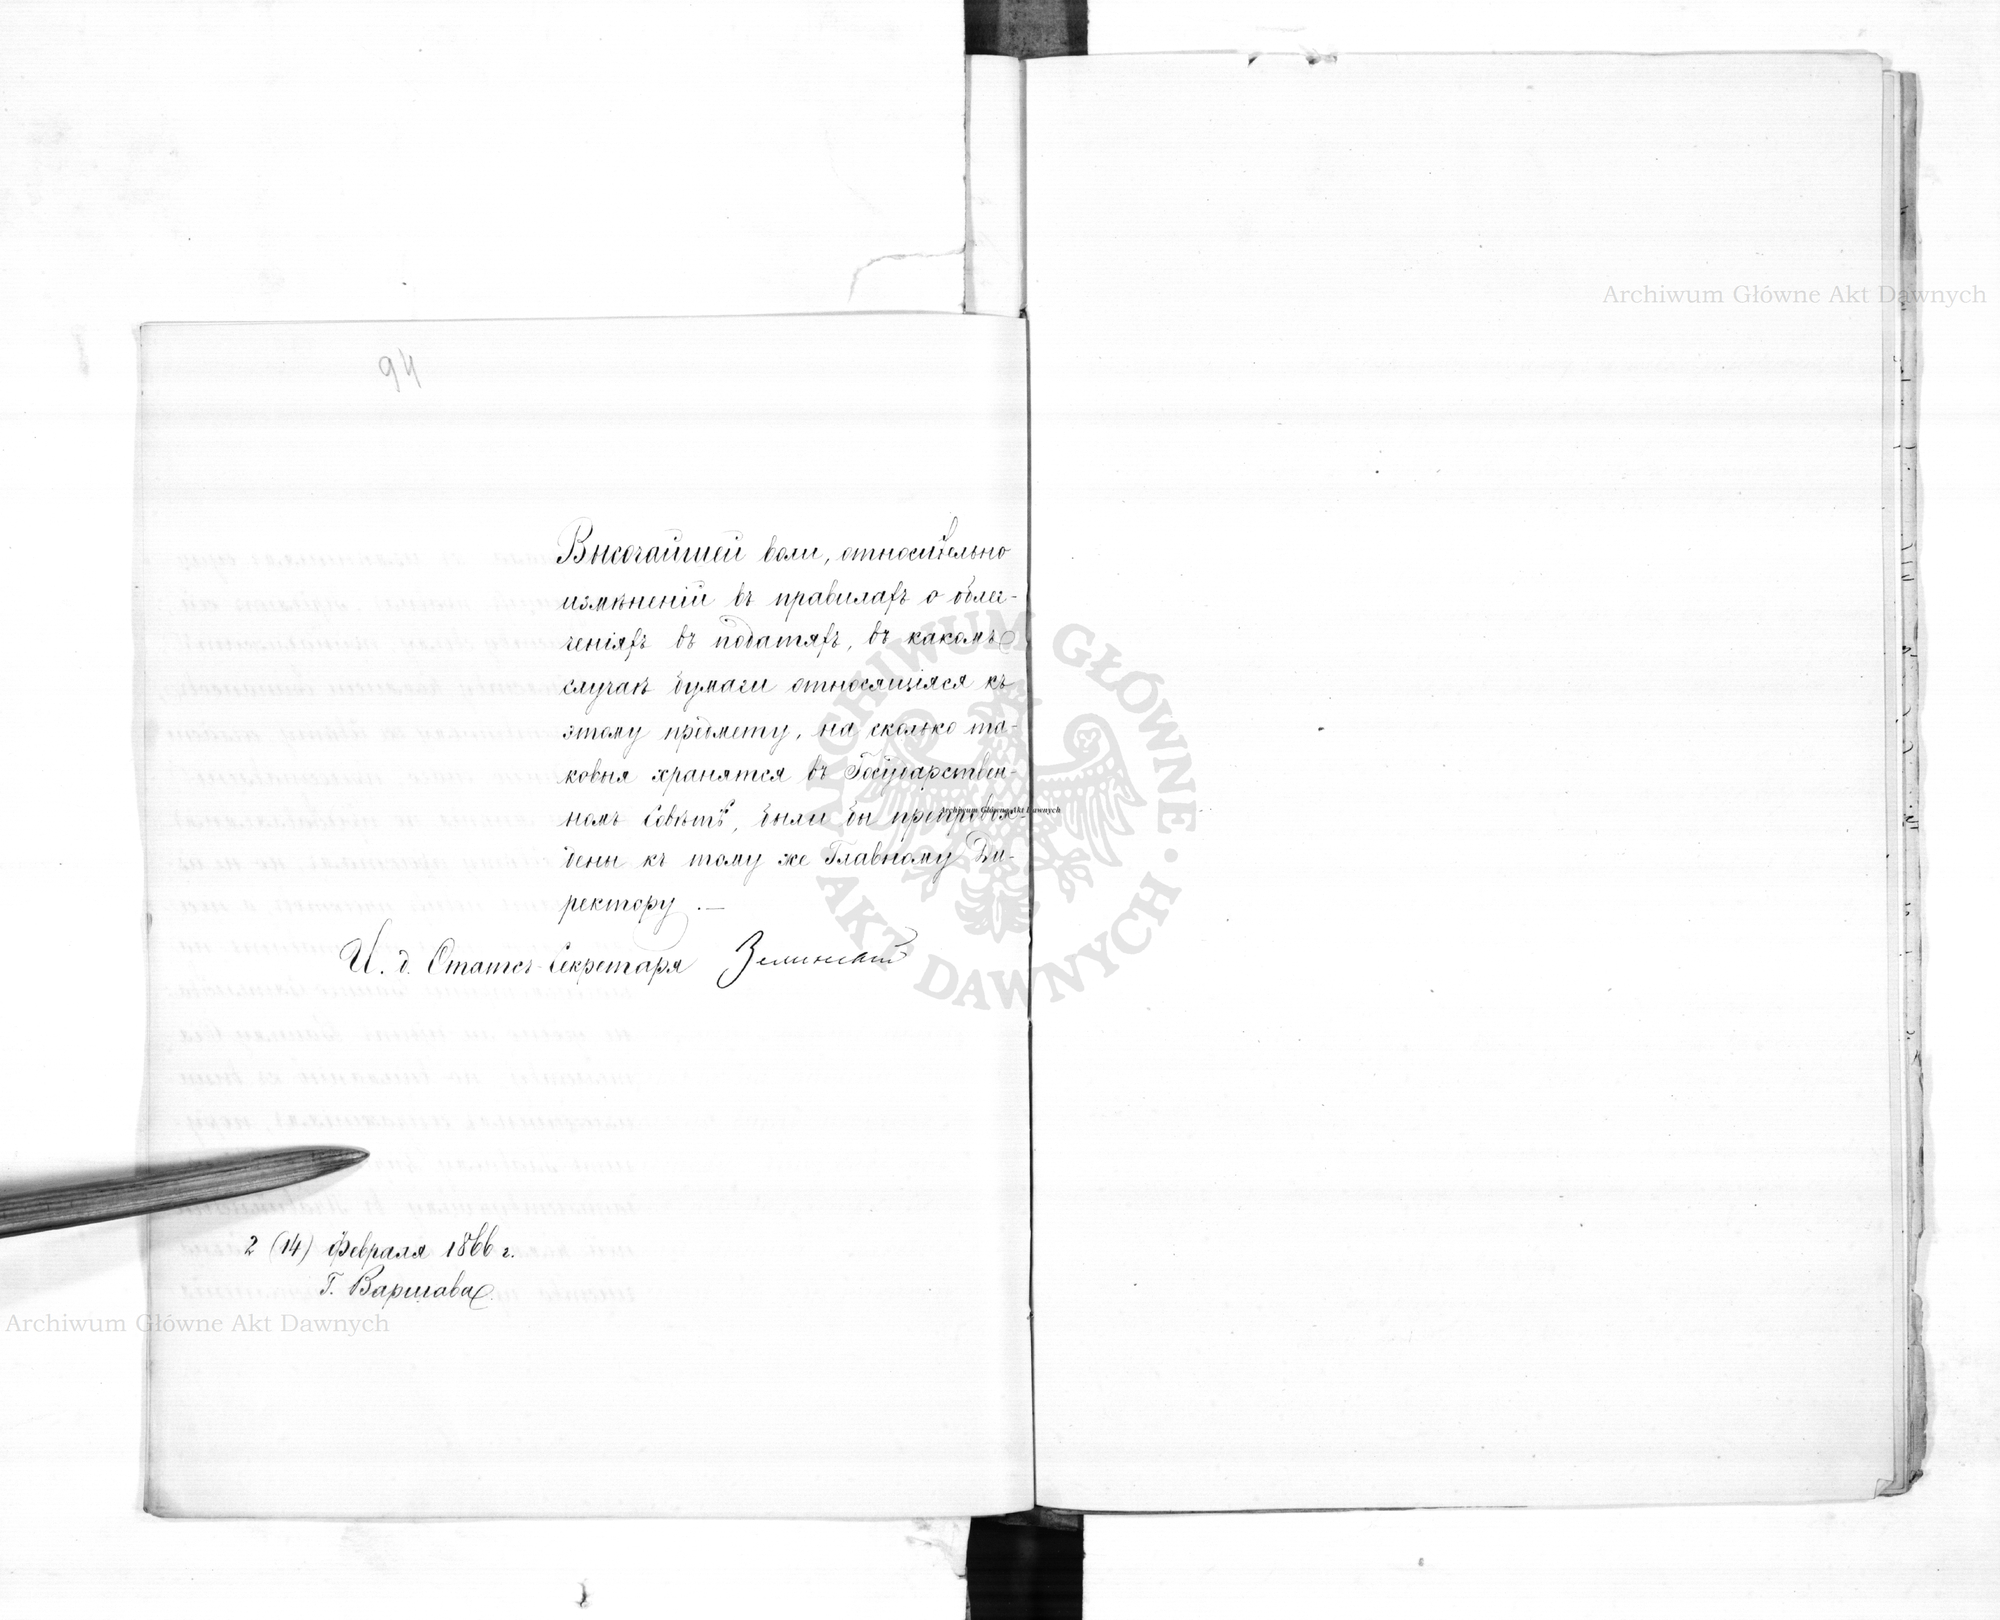 94
Высочайшей воли, относительно
измѣненій въ правилахъ о облег-
ченіяхъ въ податяхъ, въ какомъ
случаѣ бумаги относящіяся къ
этому предмету, на сколько та-
ковыя хранятся въ Государствен-
номъ Совѣтѣ, были бы препровож-
дены къ тому же Главному Ди-
ректору. —
И. д. Статсъ-Секретаря Зелинскій
2 (14) Февраля 1866 г.
Г. Варшава.
Archiwum Główne Akt Dawnych
Archiwum Główne Akt Dawnych
Archiwum Główne Akt Dawnych
ARCHIWUM GŁÓWNE AKT DAWNYCH